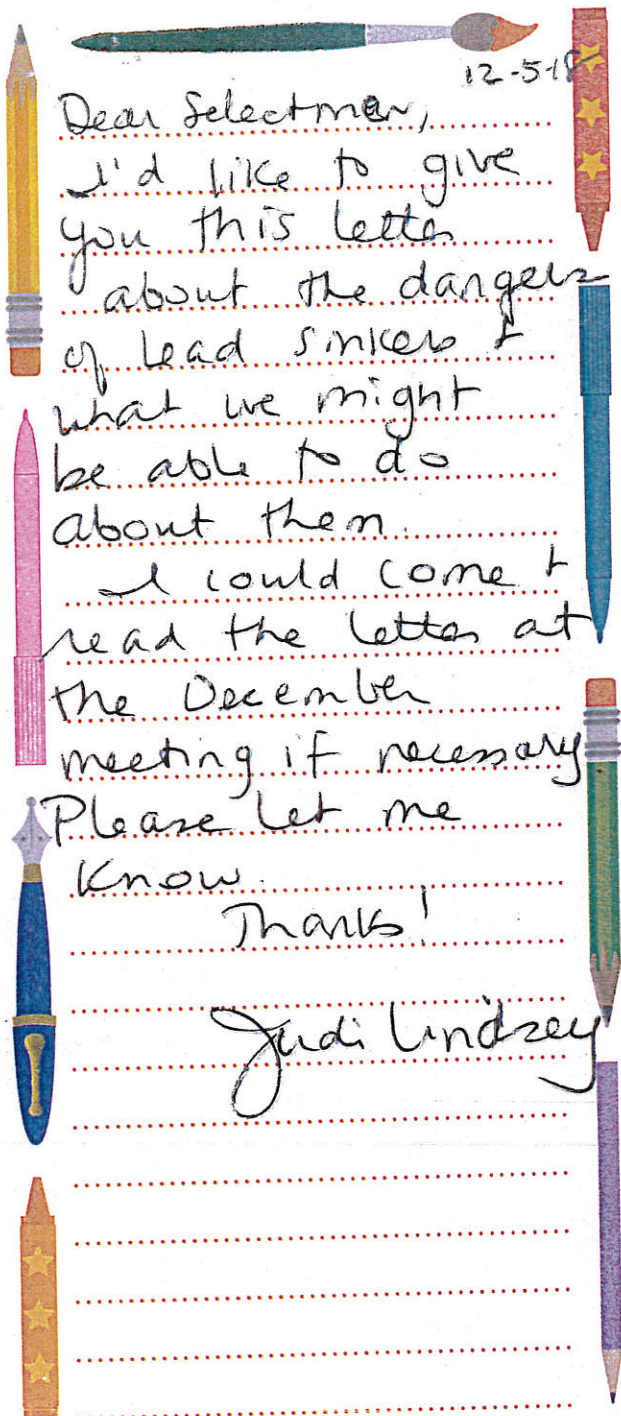 12-5-18
Dear Selectmen,
I'd like to give
you this letter
about the dangers
of lead sinkers +
what we might
be able to do
about them.
I could come +
read the letter at
the December
meeting if necessary
Please let me
know.
Thanks!
Judi Lindsey